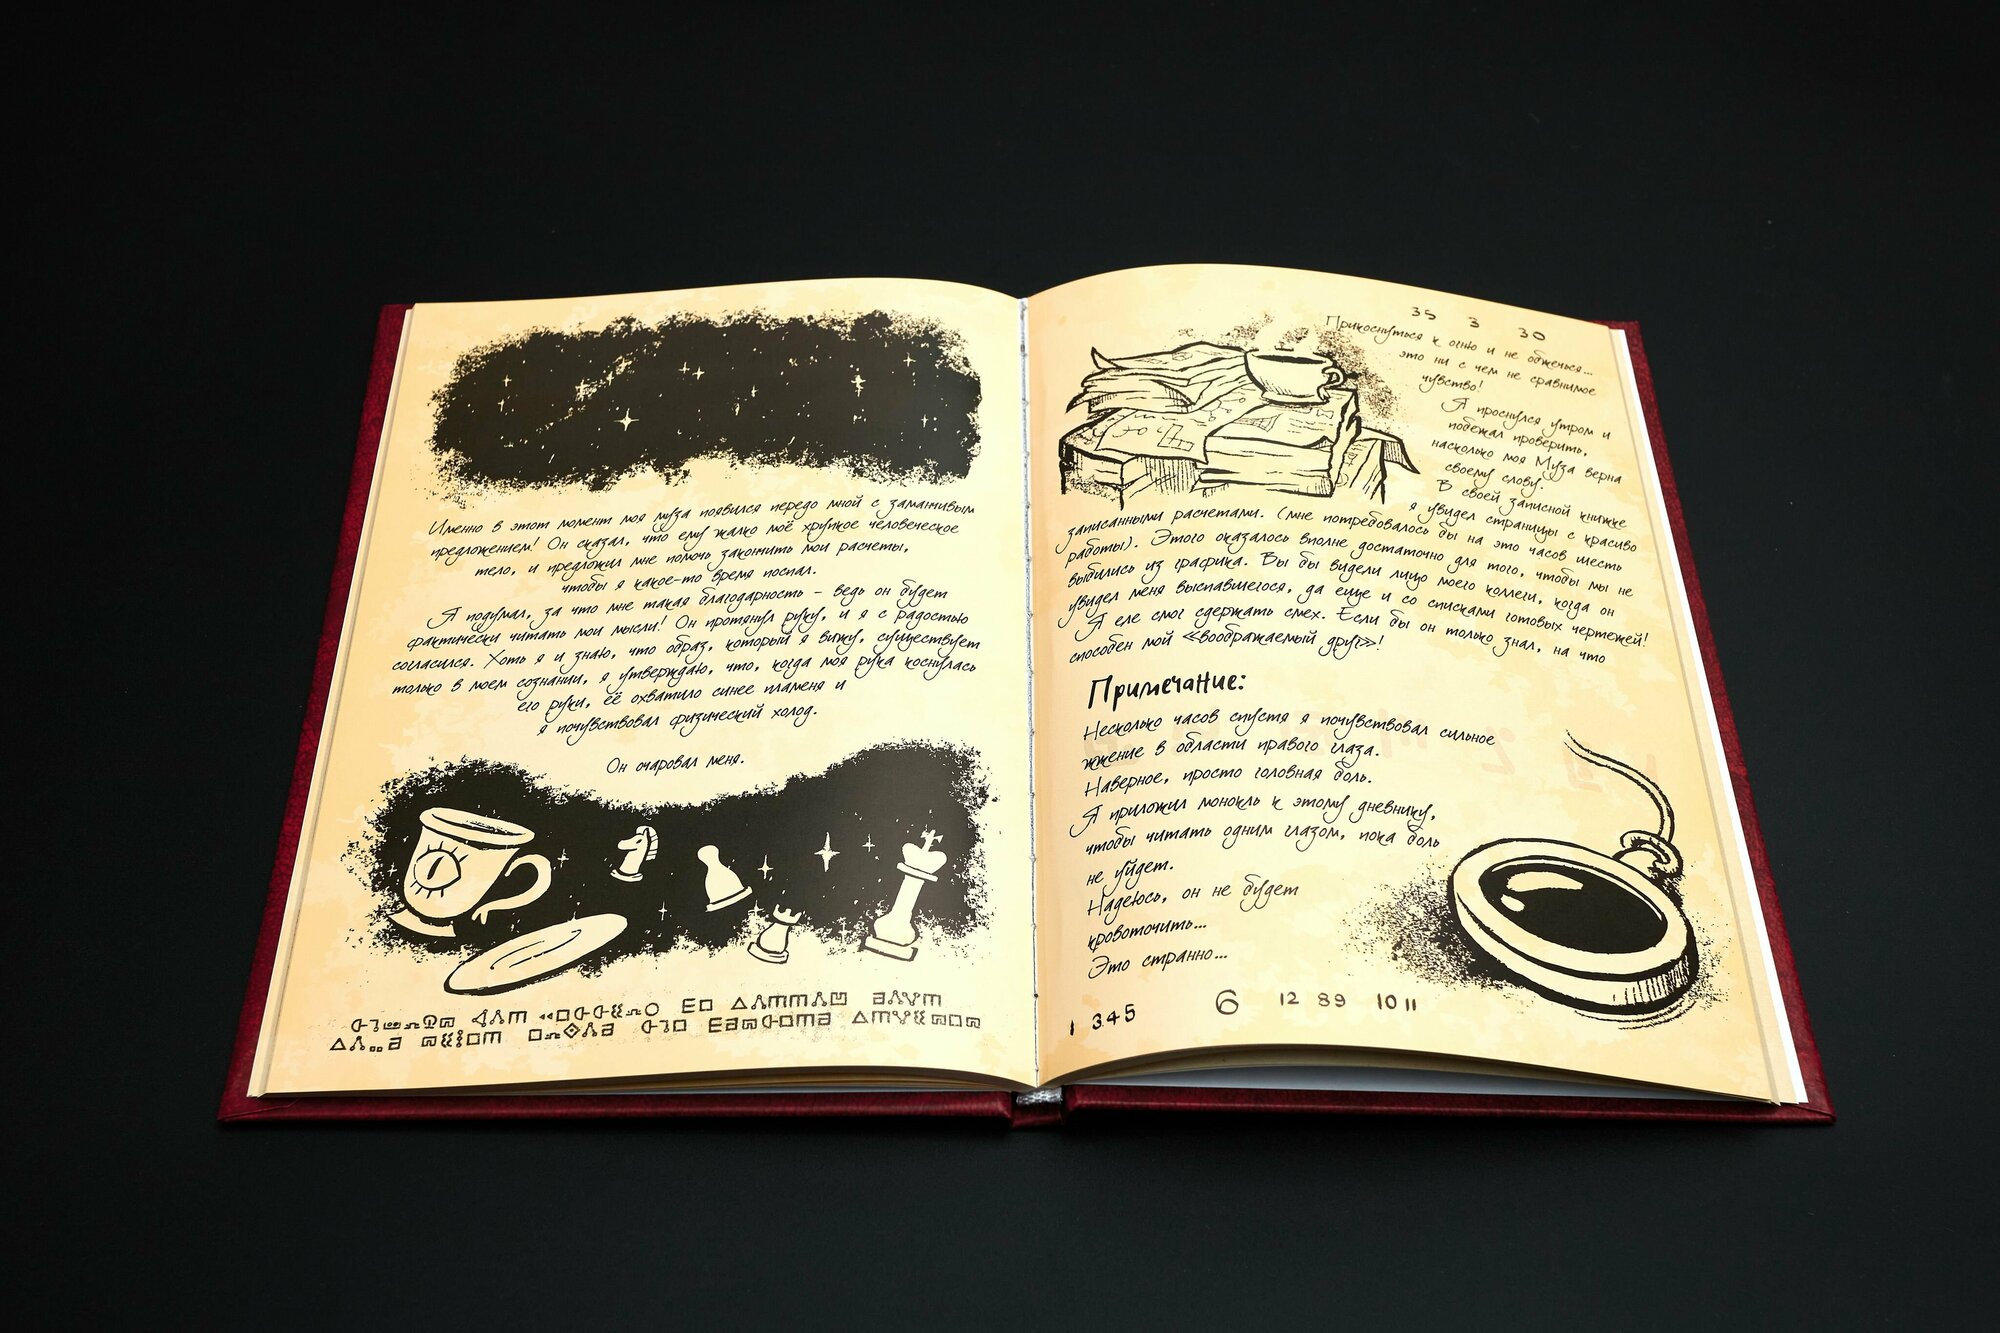 Именно в этот момент моя муза появился передо мной с заманчивым
предложением! Он сказал, что ему жалко моё хрупкое человеческое
тело, и предложил мне помочь закончить мои расчеты,
чтобы я какое-то время поспал.
Я подумал, за что мне такая благодарность - ведь он будет
фактически читать мои мысли! Он протянул руку, и я с радостью
согласился. Хоть я и знаю, что образ, который я вижу, существует
только в моем сознании, я утверждаю, что, когда моя рука коснулась
его руки, её охватило синее пламеня и
я почувствовал физический холод.
Он очаровал меня.
35 3 30
Прикоснуться к огню и не обжечься...
это ни с чем не сравнимое
чувство!
Я проснулся утром и
подежал проверить,
насколько моя Муза верна
своему слову.
В своей записной книжке
я увидел страницы с красиво
записанными расчетами. (мне потребовалось бы на это часов шесть
работы). Этого оказалось вполне достаточно для того, чтобы мы не
выбились из графика. Вы бы видели лицо моего коллеги, когда он
увидел меня выспавшегося, да еще и со списками готовых чертежей!
Я еле смог сдержать смех. Если бы он только знал, на что
способен мой «воображаемый друг»!
Примечание:
Несколько часов спустя я почувствовал сильное
жжение в области правого глаза.
Наверное, просто головная боль.
Я приложил монокль к этому дневнику,
чтобы читать одним глазом, пока боль
не уйдет.
Надеюсь, он не будет
кровоточить...
Это странно...
1 345 6 12 89 10 11